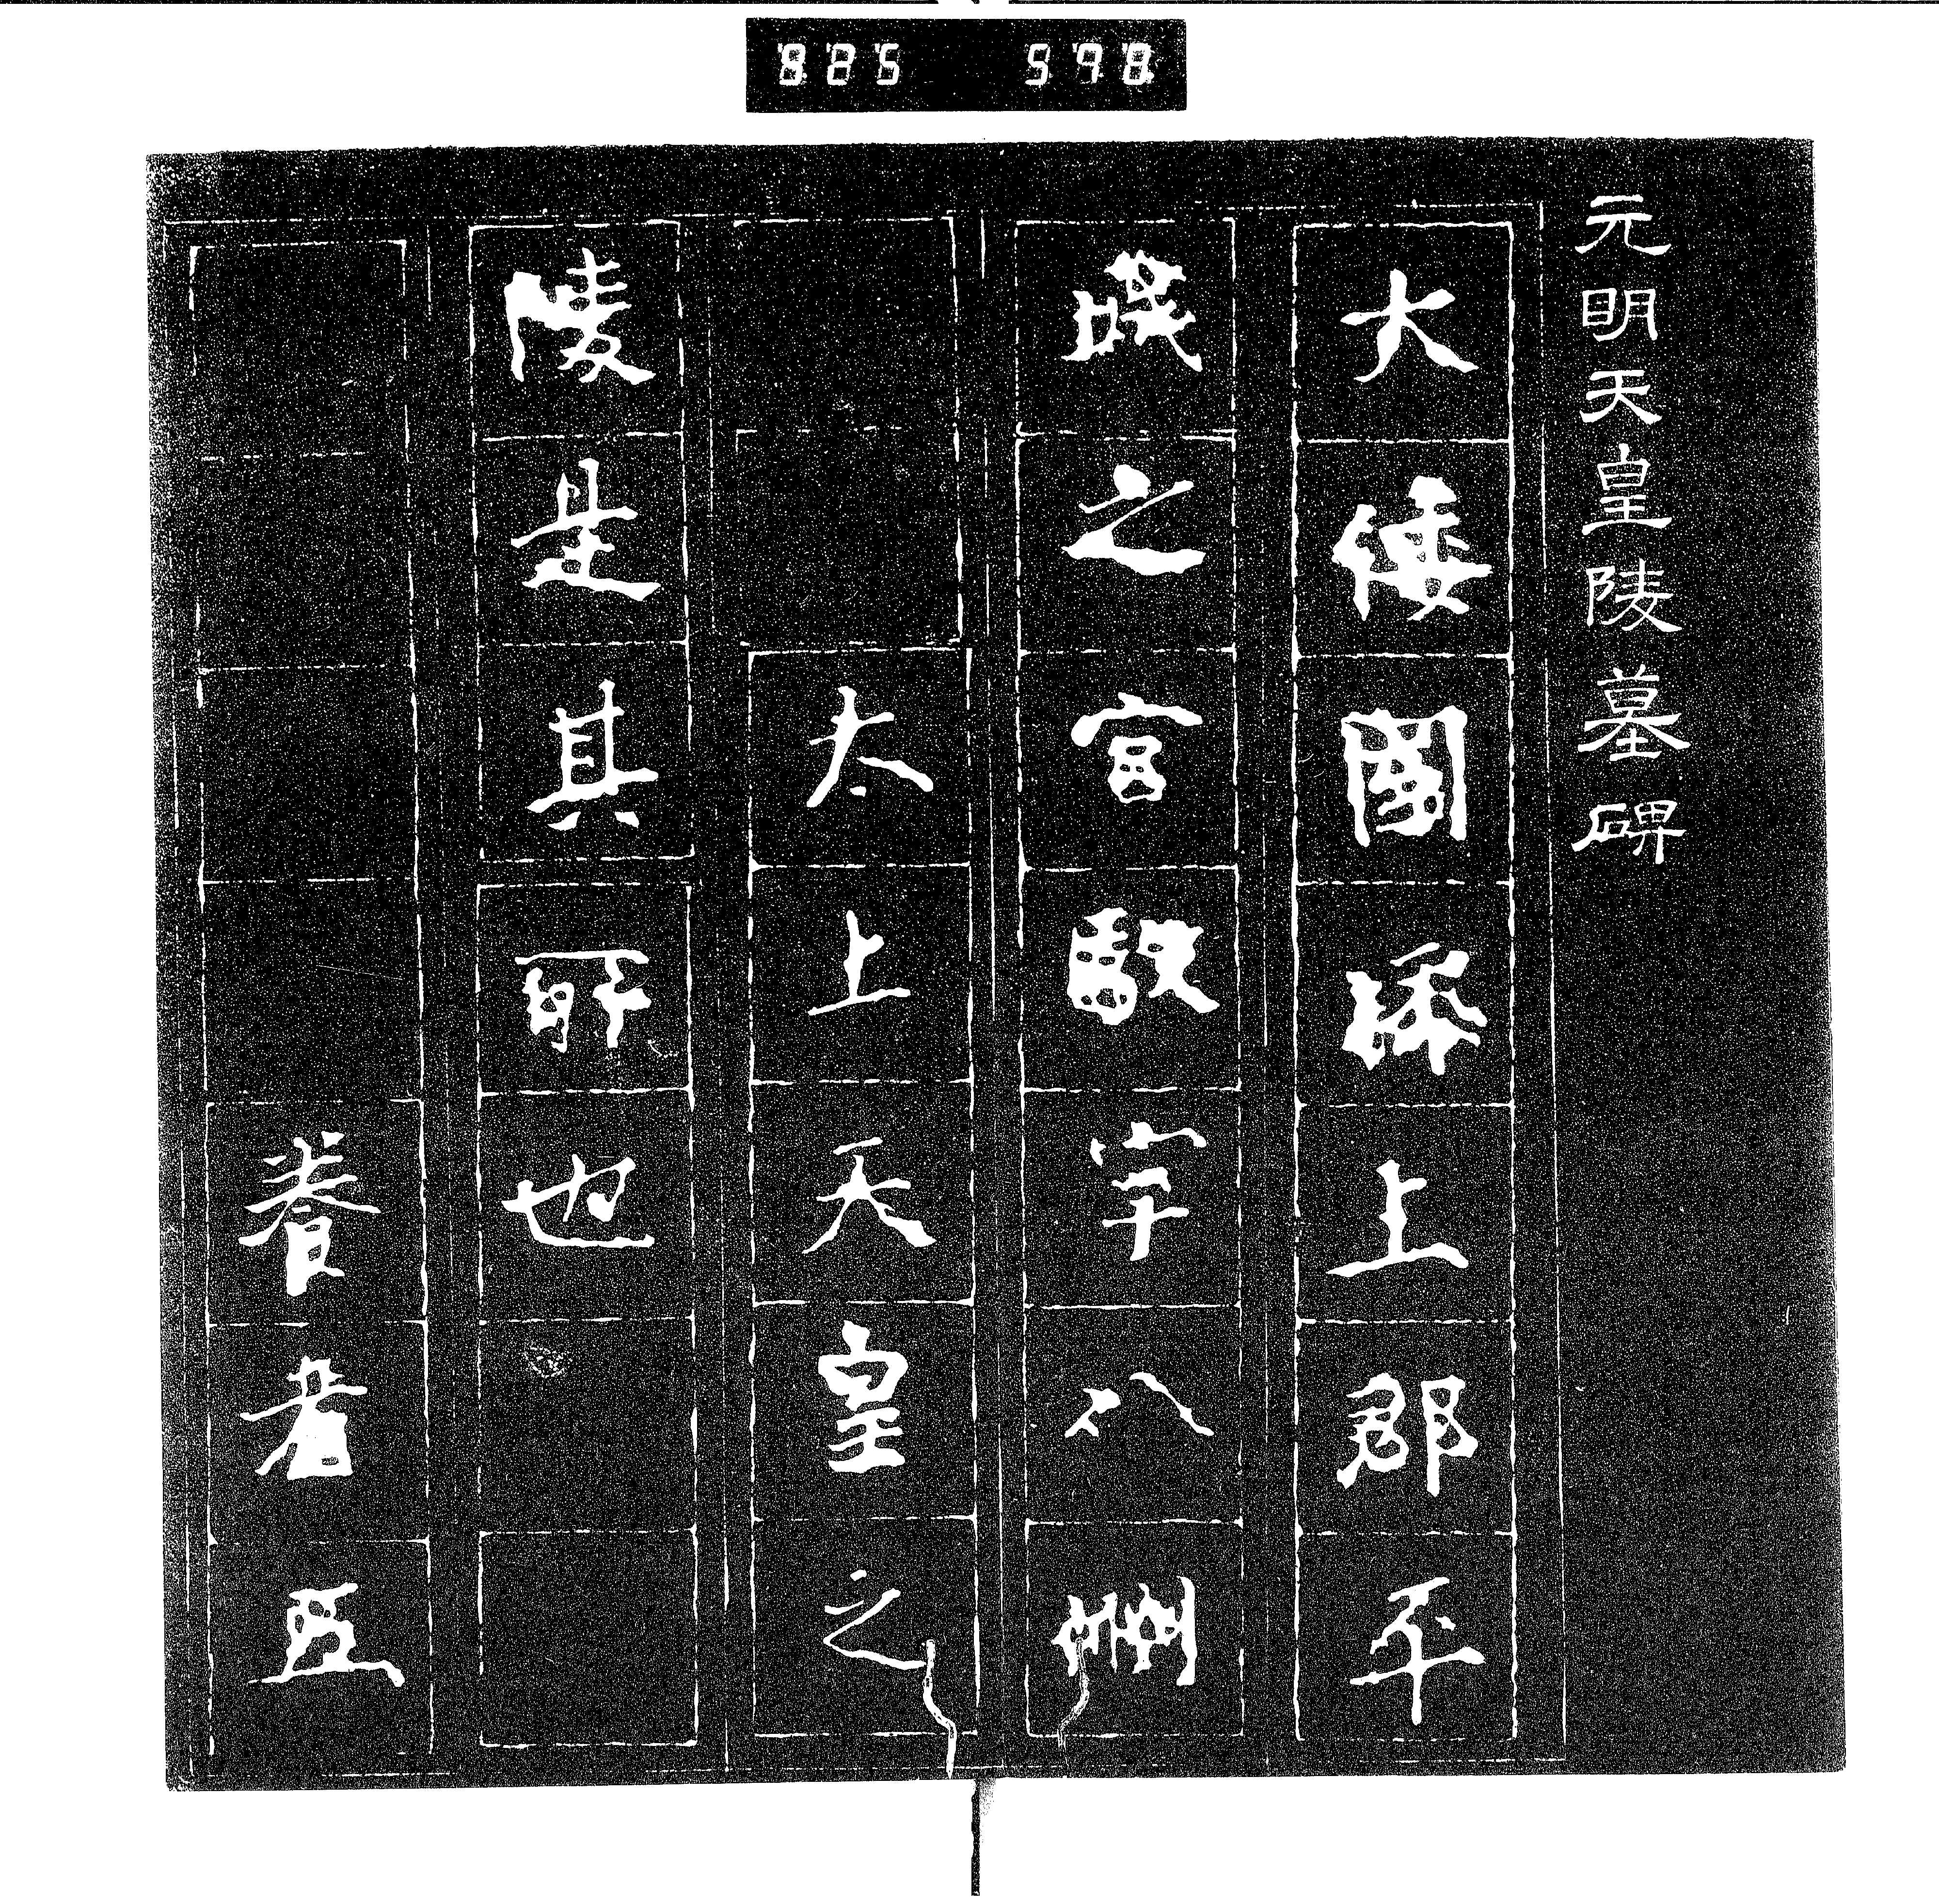 元明天皇陵墓碑
大倭國添上郡平
城之宮馭宇八洲
太上天皇之
陵是其所也
養老五